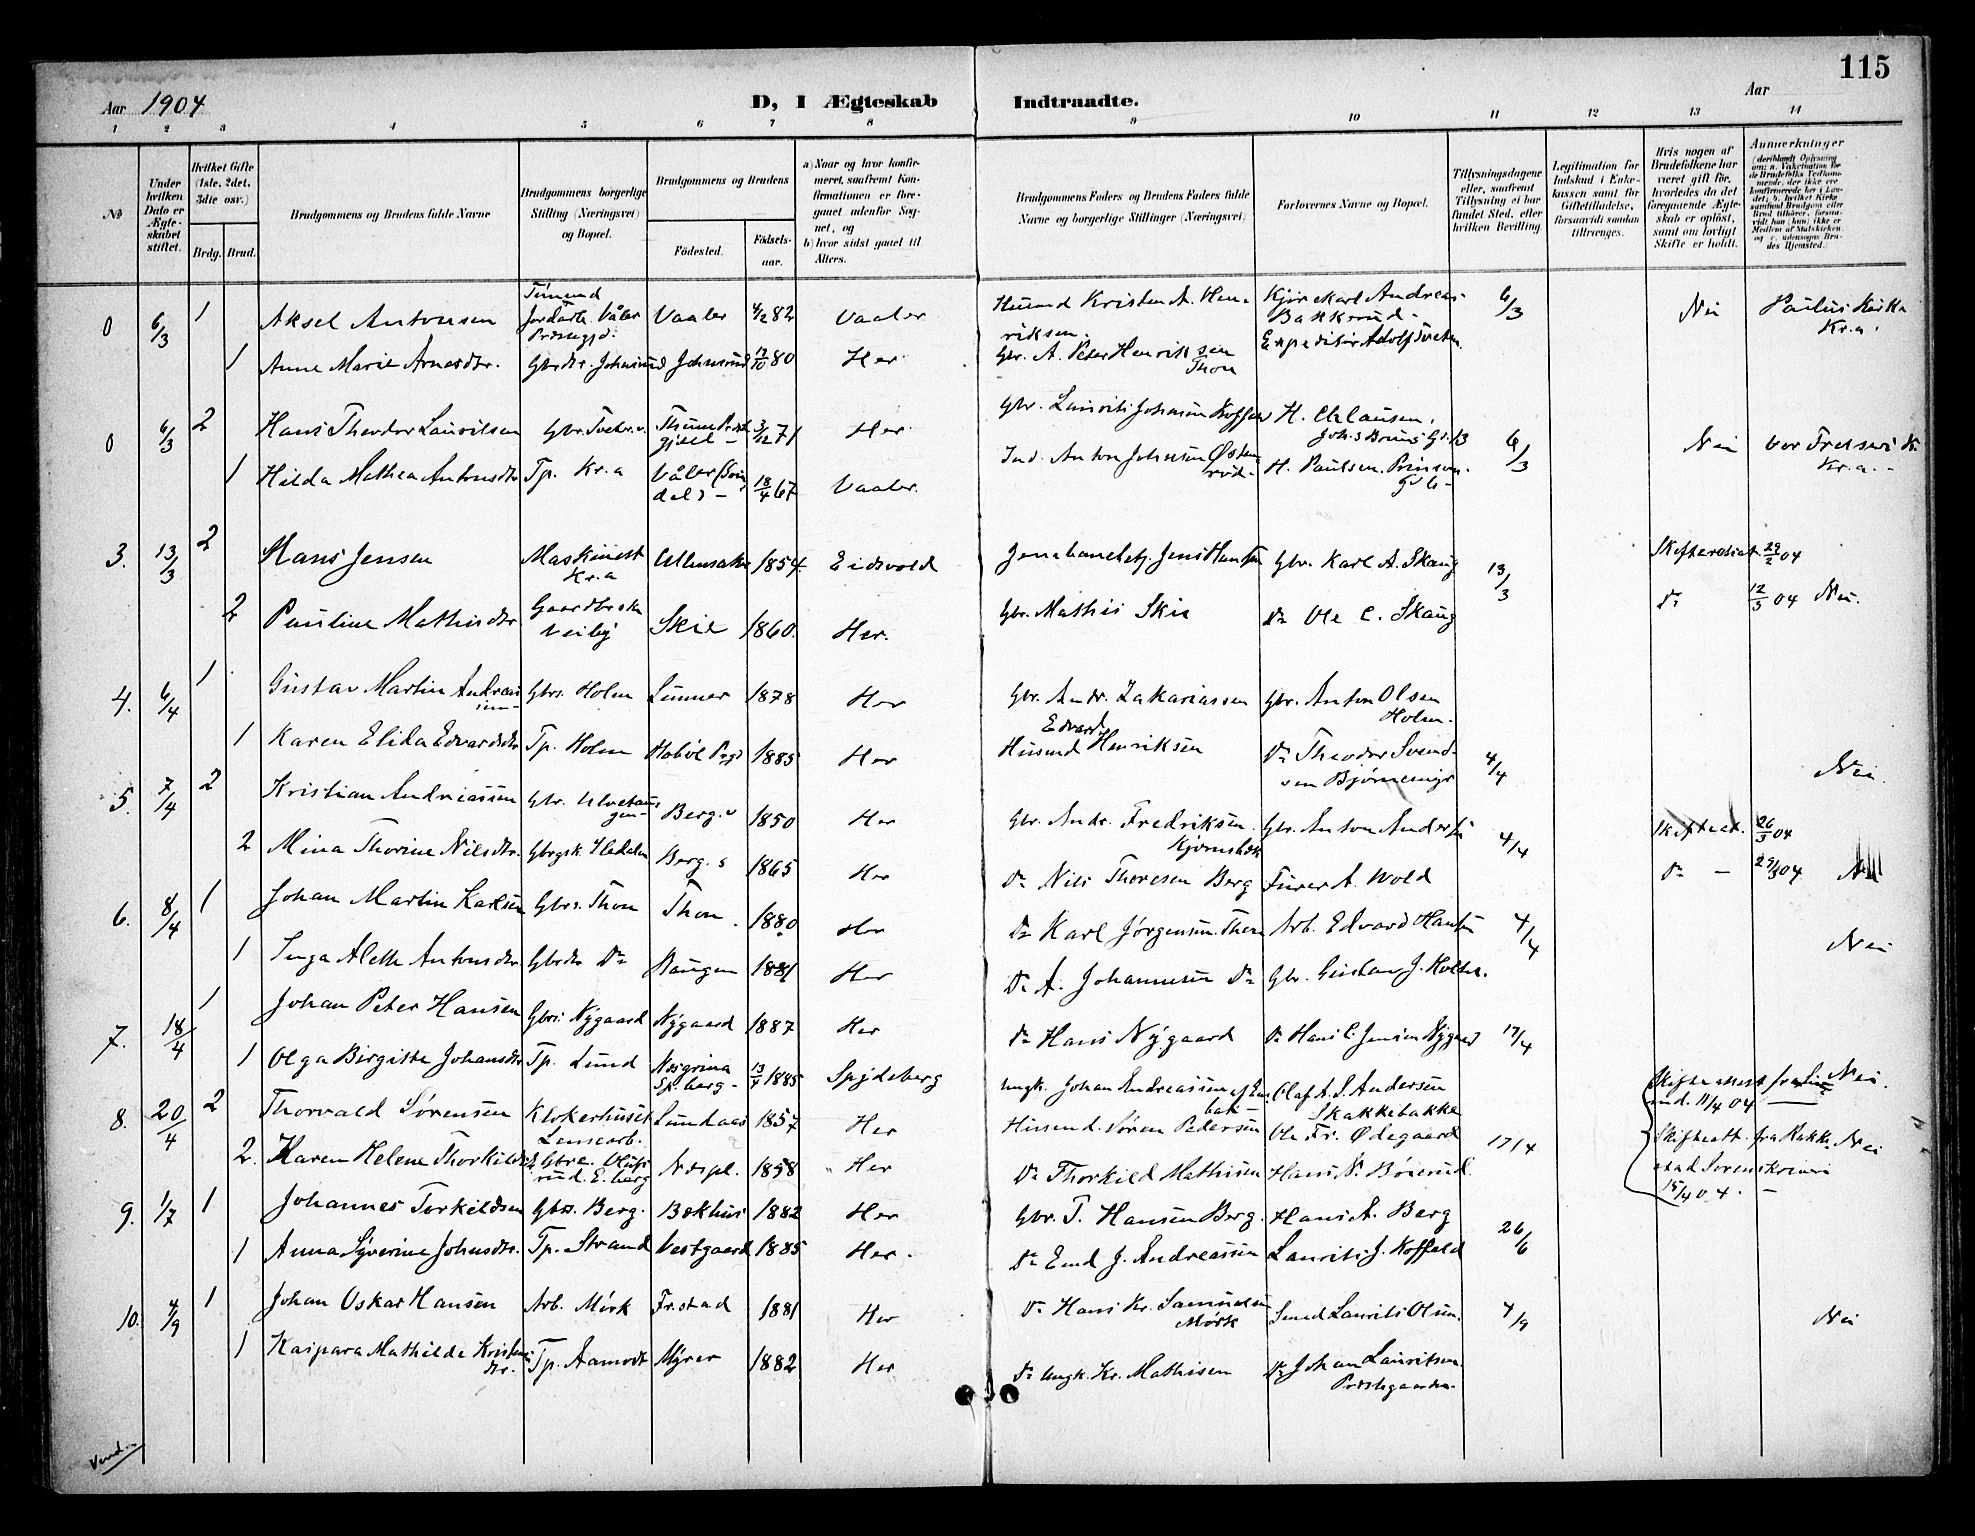 115
Aar 1904 D, I Ægteskab Indtraadte. Aar
1 2 3 4 5 6 7 8 9 10 11 12 13 14
№
Under hvilken Dato er Ægteskabet stiftet.
Hvilket Gifte (1ste, 2det, 3die osv.)
Brdg. Brud.
Brudgommens og Brudens fulde Navne
Brudgommens borgerlige Stilling (Næringsvei) og Bopæl.
Brudgommens og Brudens
Fødested. Fødselsaar.
a) Naar og hvor konfirmeret, saafremt Konfirmationen er foregaaet udenfor Sognet, og
b) hvor sidst gaaet til Alters.
Brudgommens Faders og Brudens Faders fulde Navne og borgerlige Stillinger (Næringsvei).
Forlovernes Navne og Bopæl.
Tillysningsdagene eller, saafremt Tillysning ei har fundet Sted, efter hvilken Bevilling.
Legitimation for Indskud i Enkekassen samt for Giftetilladelse, forsaavidt saadan tiltrænges.
Hvis nogen af Brudefolkene har været gift før, hvorledes da det foregaaende Ægteskab er opløst, samt om lovligt Skifte er holdt.
Anmerkninger
0 6/3 1 Aksel Antonsen Vaaler 4/12 82 Vaaler Husmd Kristen A. Henriksen. Karl Andreas. Bakkerud. 6/3 Nei Paulus Kirke Kr.a.
1 Anne Marie Arnesdtr. Gbrdtr. Johnsrud Johnsrud 12/10 80 Her Gbr. A. Peter Henriksen Thon Expeditør Adolf
0 6/3 2 Hans Theodor Lauritsen 3/12 71 Her Gbr. Laurits Johnsen Koffeld H. Clausen. 6/3 Nei Vor Frelsers K. Kr.a.
1 Hilda Mathea Antonsdtr Tp. Kr.a Våler 18/4 67 Vaaler. Ind. Anton Johnsen H. Paulsen.
3. 13/3 2 Hans Jensen Maskinist Kr.a Ullensaker 1854. Eidsvold Jens Hansen Gbr. Karl A. Skaug 13/3 Skifteattest. 29/2 04
2 Pauline Mathisdtr Gaardbrske Skie 1860. Her. Gbr. Mathis Skie Do Ole C. Skaug Do 12/3 04 Nei.
4. 6/4 1 Gustav Martin Andreassen Gbrs. Holm Lunner 1878 Her Gbr. Andr. Zakariassen Gbr. Anton Olsen Holm.
1 Karen Elida Edvardsdtr Tp. Holm Hobøl Pgd 1885 Her Husmd Edvard Henriksen Do Theodor Svendsen Bjørnemyr 4/4 Nei.
5. 7/4 2 Kristian Andreassen Berg. 1850 Her Gbr. Andr. Fredriksen. Gbr. Anton Andersen 4/4 Skifteat. 26/3 04
2 Mina Thorine Nilsdtr. Berg. 1865 Her Do Nils Thoresen Berg A. Wold Do — 29/3 04 Nei
6. 8/4 1 Johan Martin Karlsen Gbrs. Thon Thon 1880 Her Do Karl Jørgensen. Thon Arb. Edvard Hansen 4/4
1 Inga Alette Antonsdtr. Gbrdtr Do Haugen 1881 Her Do A. Johannesen Do Gbr. Gustav J. Holter. Nei
7. 18/4 1 Johan Peter Hansen Gbrs. Nygaard Nygaard 1887 Her Do Hans Nygaard Do Hans C. Jensen Nygaard 17/4
1 Olga Birgitte Johansdtr Tp. Lund 13/9 1885 Spydeberg Ungk. Johan Andreassen Olaf A. S. Andersen Skakkebakke Nei.
8. 20/4 2 Thorvald Sørensen Klokkerhuset Lundaas 1857 Her Husmd. Søren Pedersen Ole Fr. Ødegaard 17/4 11/4 04
2. Karen Helene Thorkildsdtr 1858 Her Do Thorkild Mathisen Hans N. Bøierud. Skifteatt. fra Rakkestad Sorenskriveri 15/4 04. Nei
9. 1/7 1 Johannes Torkildsen Gbrs. Berg. Bakhus 1882 Her Gbr. T. Hansen Berg. Hans A. Berg 26/6
1 Anna Syverine Johnsdtr. Tp. Strand Vestgaard 1885 Her. Do Emd J. Andreassen Laurits J. Koffeld
10. 4/9 1 Johan Oskar Hansen Arb. Mørk Fr.stad 1881 Her Do Hans Kr. Samuelsen Mørk Smed Laurits Olsen. 4/9 Nei
1 Kaspara Mathilde Kristensdtr. Tp. Aamodt Myrer 1882 Her Do Ungk. Kr. Mathisen Do Johan Lauritsen. Præstegaarden.
Vend.